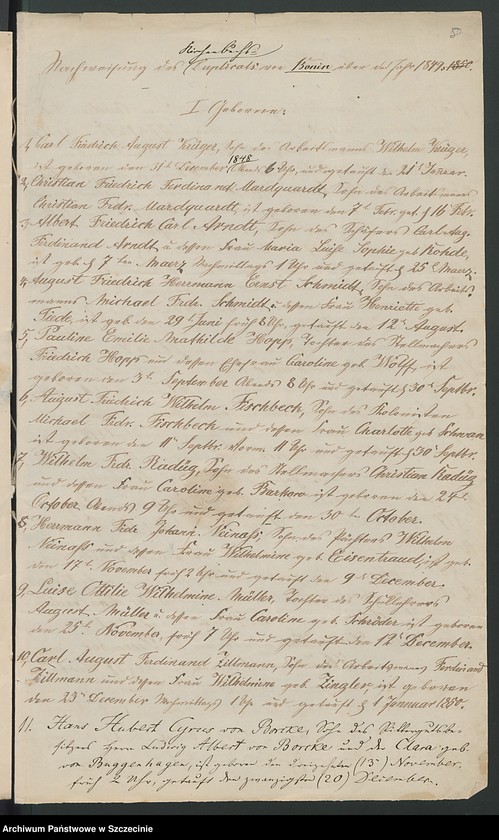 Kirchenbuchs-
Nachweisung des Duplicats von Bonin über das Jahr 1849.
I Geboren:
1, Carl Friedrich August Krüger, Sohn des Arbeitsmanns Wilhelm Krüger,
ist geboren den 31t December 1848 Abends 6 Uhr, und getauft den 21t Januar.
2, Christian Friedrich Ferdinand Mardquardt, Sohn des Arbeitsmanns
Christian Frdr. Mardquardt, ist geboren den 7t Febr. get. d 16 Febr.
3, Albert Friedrich Carl Arndt, Sohn des Schäfers Carl Aug.
Ferdinand Arndt, u dessen Frau Maria Luise Sophie geb Rohde,
ist geb. d 7ten Maerz Nachmittags 1 Uhr und getauft d 25t Maerz.
4, August Friedrich Herrmann Ernst Schmidt, Sohn des Arbeits
manns Michael Frdr. Schmidt u dessen Frau Henriette geb.
ist geb den 29t Juni früh 8 Uhr, getauft den 12t August.
5, Pauline Emilie Mathilde Hopp, Tochter des Stellmachers
Friedrich Hopp und dessen Ehefrau Caroline geb. Wolff, ist
geboren den 3t September Abends 8 Uhr und getauft d 30t Septbr.
6, August Friedrich Wilhelm Fischbeck, Sohn des Kolonisten
Michael Frdr. Fischbeck und dessen Frau Charlotte geb
ist geboren den 11t Septbr. Vorm. 11 Uhr und getauft d 30 Septbr.
7, Wilhelm Frdr. Radüg, Sohn des Stellmachers Christian Radüg
und dessen Frau Caroline geb. Barkow ist geboren den 24t
October Abends 9 Uhr und getauft den 30ten October.
8, Herrmann Frdr Johann Neinass, Sohn des Wilhelm
Neinass und dessen Frau Wilhelmine geb Eisentraud, ist geb.
den 17t November früh 2 Uhr und getauft den 9t December.
9, Luise Ottilie Wilhelmine Müller, Tochter des Schullehrers
August Müller u dessen Frau Caroline geb. Schröder ist geboren
den 25t November, früh 7 Uhr und getauft den 12t December.
10, Carl August Ferdinand Zillmann, Sohn des Arbeitsmanns Ferdinand
Zillmann und dessen Frau Wilhelmine geb. Zingler, ist geboren
den 23t December Nachmittags 1 Uhr und getauft d 1 Januar 1850.
11. Hans Hubert Cyrus von Borcke, Sohn des Rittergutsbe-
sitzers Herrn Ludwig Albert von Borcke und der Clara geb.
von Buggenhagen, ist geboren den dreizehnten (13) November
früh 2 Uhr, getauft den zwanzigsten (20) December.
Archiwum Państwowe w Szczecinie